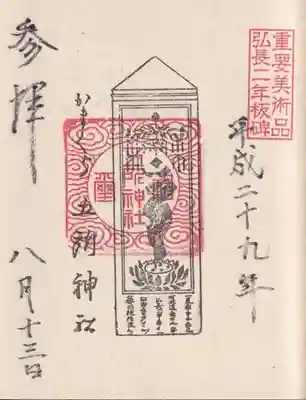 重要美術品
弘長二年板碑
平成二十九年
かまくら 五所神社
参拝
八月十三日